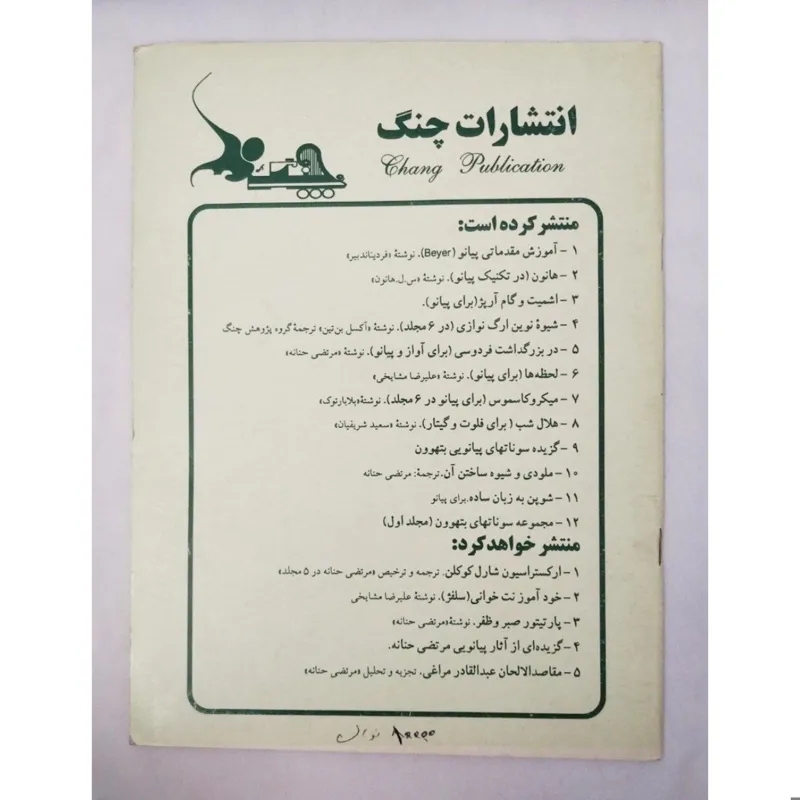 انتشارات چنگ
Chang Publication
منتشر کرده است:
۱ - آموزش مقدماتی پیانو (Beyer). نوشتهٔ «فردیناندبیر»
۲ - هانون (در تکنیک پیانو). نوشتهٔ «س.ل.هانون»
۳ - اشمیت و گام آرپژ(برای پیانو).
۴ - شیوهٔ نوین ارگ نوازی (در ۶ مجلد). نوشتهٔ «آکسل بن‌تین» ترجمهٔ گروه پژوهش چنگ
۵ - در بزرگداشت فردوسی (برای آواز و پیانو). نوشتهٔ «مرتضی حنانه»
۶ - لحظه‌ها (برای پیانو). نوشتهٔ «علیرضا مشایخی»
۷ - میکروکاسموس (برای پیانو در ۶ مجلد). نوشتهٔ«بلابارتوک»
۸ - هلال شب ( برای فلوت و گیتار). نوشتهٔ «سعید شریفیان»
۹ - گزیده سوناتهای پیانویی بتهوون
۱۰ - ملودی و شیوه ساختن آن. ترجمهٔ: مرتضی حنانه
۱۱ - شوپن به زبان ساده. برای پیانو
۱۲ - مجموعه سوناتهای بتهوون (مجلد اول)
منتشر خواهد کرد:
۱ - ارکستراسیون شارل کوکلن. ترجمه و ترخیص «مرتضی حنانه در ۵ مجلد»
۲ - خود آموز نت خوانی(سلفژ). نوشتهٔ علیرضا مشایخی
۳ - پارتیتور صبر و ظفر. نوشتهٔ«مرتضی حنانه»
۴ - گزیده‌ای از آثار پیانویی مرتضی حنانه.
۵ - مقاصدالالحان عبدالقادر مراغی. تجزیه و تحلیل «مرتضی حنانه»